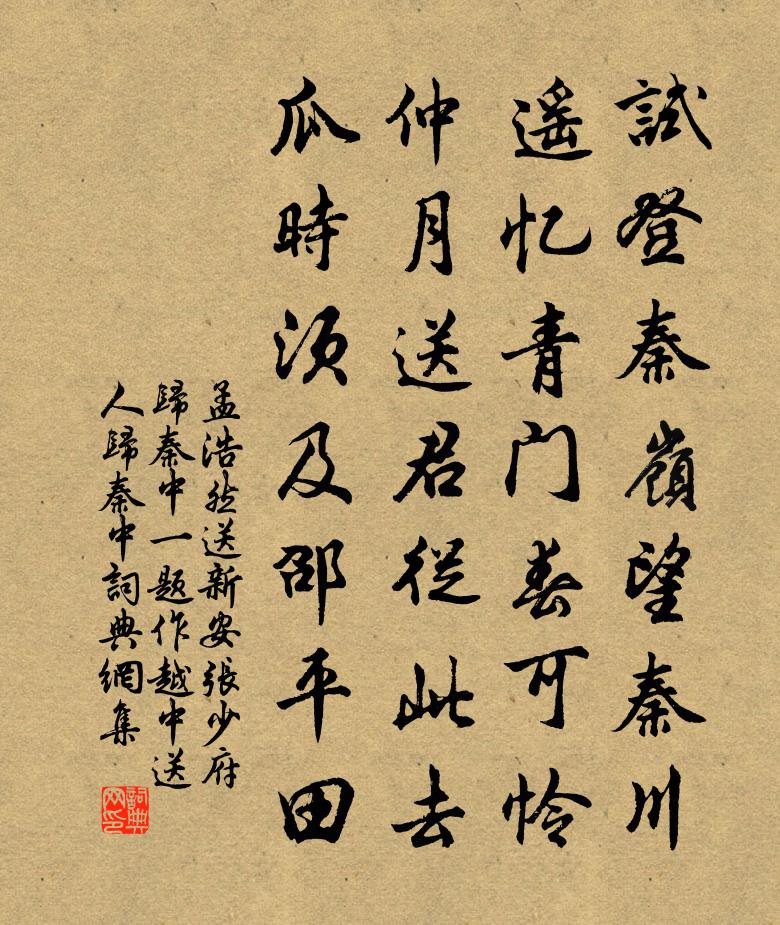 試登秦嶺望秦川
遥忆青门春可怜
仲月送君従此去
瓜時须及邵平田
孟浩然送新安張少府
歸秦中一题作越中送
人歸秦中詞典網集
詞典网印